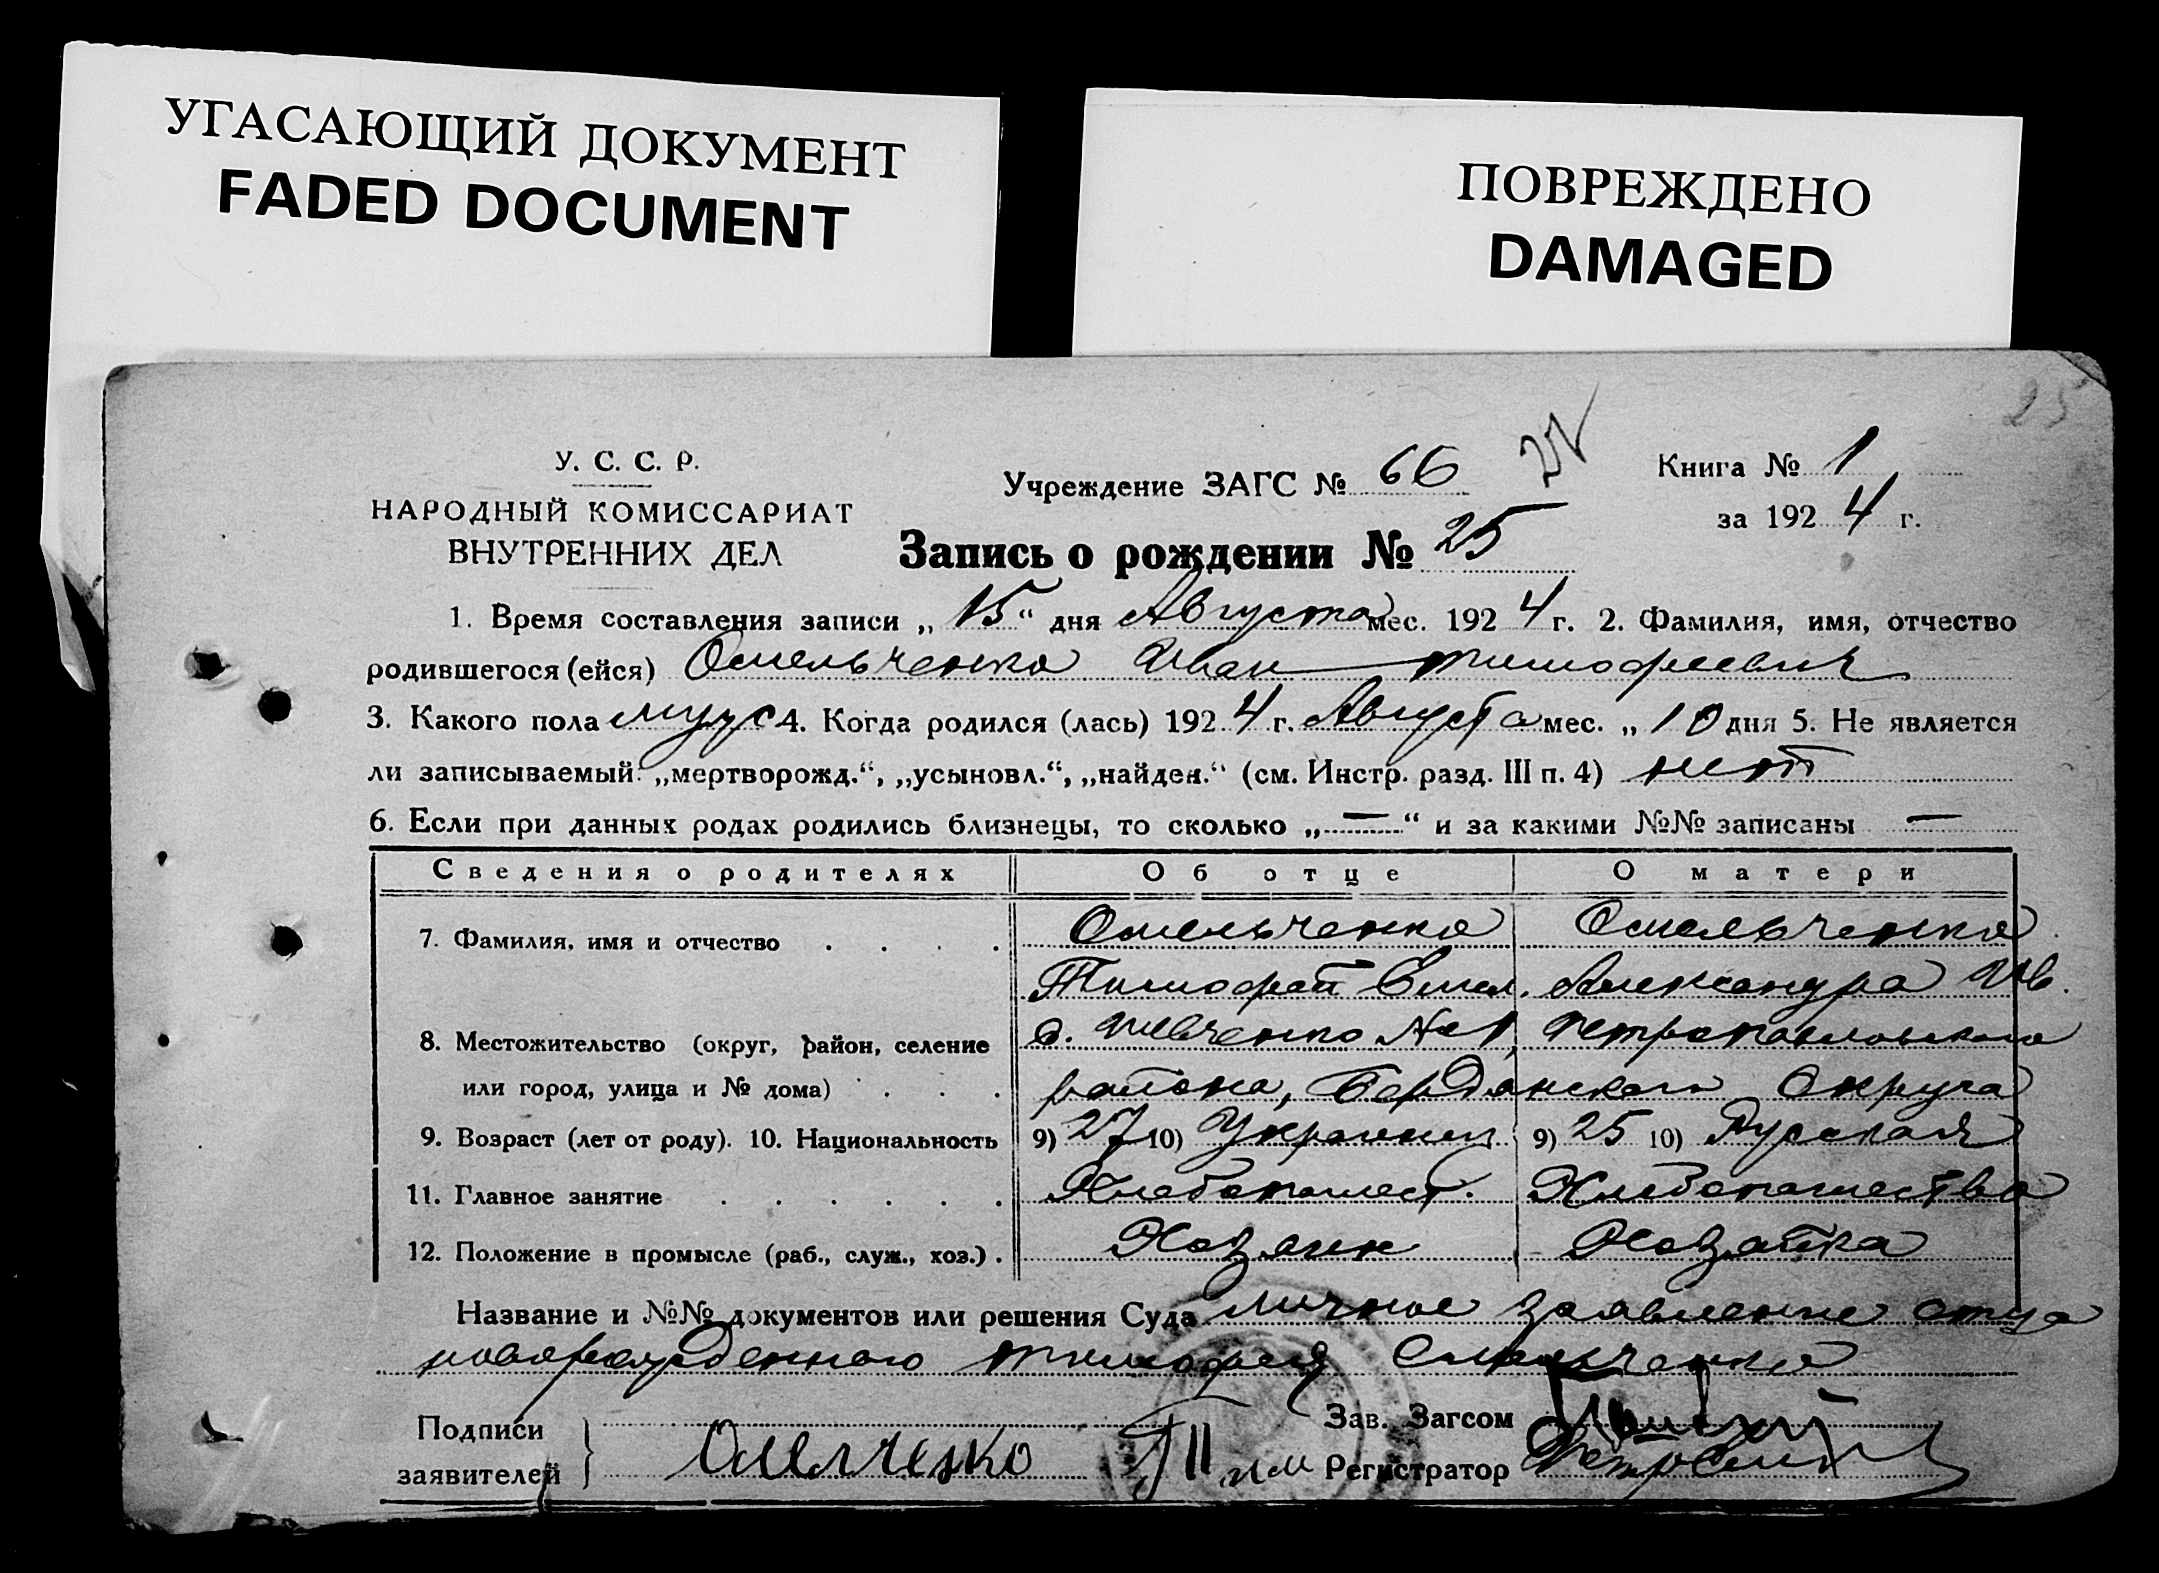 УГАСАЮЩИЙ ДОКУМЕНТ
FADED DOCUMENT
ПОВРЕЖДЕНО
DAMAGED
25
У. С. С. Р.
НАРОДНЫЙ КОМИССАРИАТ
ВНУТРЕННИХ ДЕЛ
Учреждение ЗАГС № 66
Книга № 1
за 1924 г.
Запись о рождении № 25
1. Время составления записи „15“ дня Августа мес. 1924 г. 2. Фамилия, имя, отчество
родившегося (ейся) Омельченко Иван Тимофеевич
3. Какого пола муж 4. Когда родился (лась) 1924 г. Августа мес. „10 дня 5. Не является
ли записываемый: „мертворожд.“, „усыновл.“, „найден.“ (см. Инстр. разд. III п. 4) нет
6. Если при данных родах родились близнецы, то сколько „—“ и за какими №№ записаны —
Сведения о родителях Об отце О матери
7. Фамилия, имя и отчество . . . . Омельченко Омельченко
Тимофей Емел. Александра Ив.
8. Местожительство (округ, район, селение с. Шевченко №1, Петропавловского
или город, улица и № дома) . . . района, Бердянского Округа
9. Возраст (лет от роду). 10. Национальность 9) 27 10) Украинец 9) 25 10) Русская
11. Главное занятие . . . . . . Хлебопашест. Хлебопашество
12. Положение в промысле (раб., служ., хоз.) . Хозяин Хозяйка
Название и №№ документов или решения Суда Личное заявление отца
новорожденного Тимофея Омельченко
Подписи
заявителей } Омелченко
Зав. Загсом
Регистратор